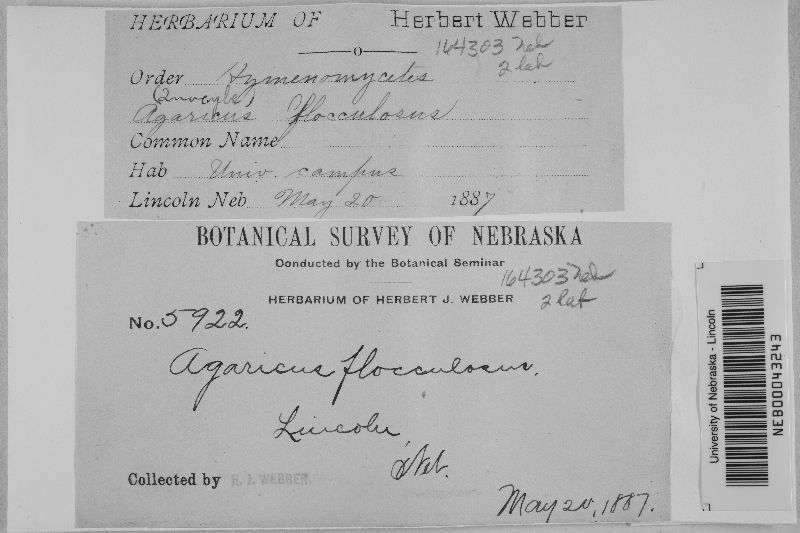 HERBARIUM OF Herbert Webber
o
164303 Neb
2 lab
Order Hymenomycetes
Agaricus flocculosus
Common Name
Hab Univ. campus
Lincoln Neb May 20 1887
BOTANICAL SURVEY OF NEBRASKA
Conducted by the Botanical Seminar
164303 Neb
2 lab
HERBARIUM OF HERBERT J. WEBBER
No. 5922.
Agaricus flocculosus.
Lincoln
Neb.
Collected by H. J. WEBBER.
May 20, 1887.
University of Nebraska - Lincoln
NEB00043243